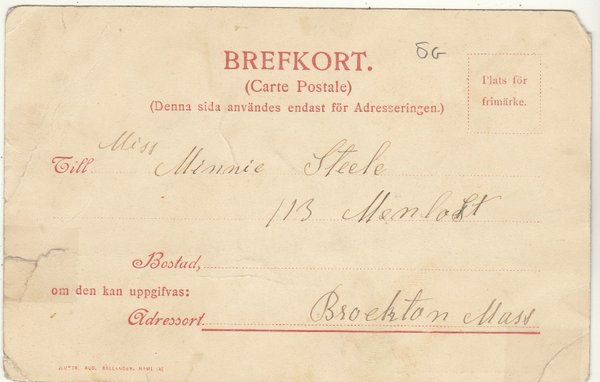 BREFKORT.
(Carte Postale)
(Denna sida användes endast för Adresseringen.)
SG
Plats för
frimärke.
Till Miss Minnie Steele
113 Menlo St
Bostad,
om den kan uppgifvas:
Adressort. Brockton Mass